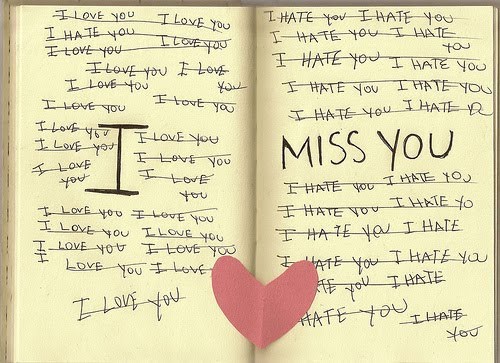 I LOVE YOU I LOVE YOU
I HATE YOU I LOVE YOU
I LOVE YOU
I LOVE YOU I LOVE
YOU
I LOVE YOU I LOVE YOU
I LOVE YOU
I LOVE YOU
I LOVE
YOU
I
I LOVE YOU
I LOVE YOU
I LOVE
YOU
I LOVE YOU I LOVE YOU
I LOVE YOU I LOVE YOU
I LOVE YOU I LOVE YOU
I LOVE YOU I LOVE
I LOVE YOU
I HATE YOU I HATE YOU
I HATE YOU I HATE
YOU
I HATE YOU I HATE YOU
I HATE YOU I HATE YOU
I HATE YOU I HATE
MISS YOU
I HATE YOU I HATE YOU
I HATE YOU I HATE YO
I HATE YOU I HATE
I HATE YOU I HATE YOU
ATE YOU I HATE
HATE YOU I HATE
YOU